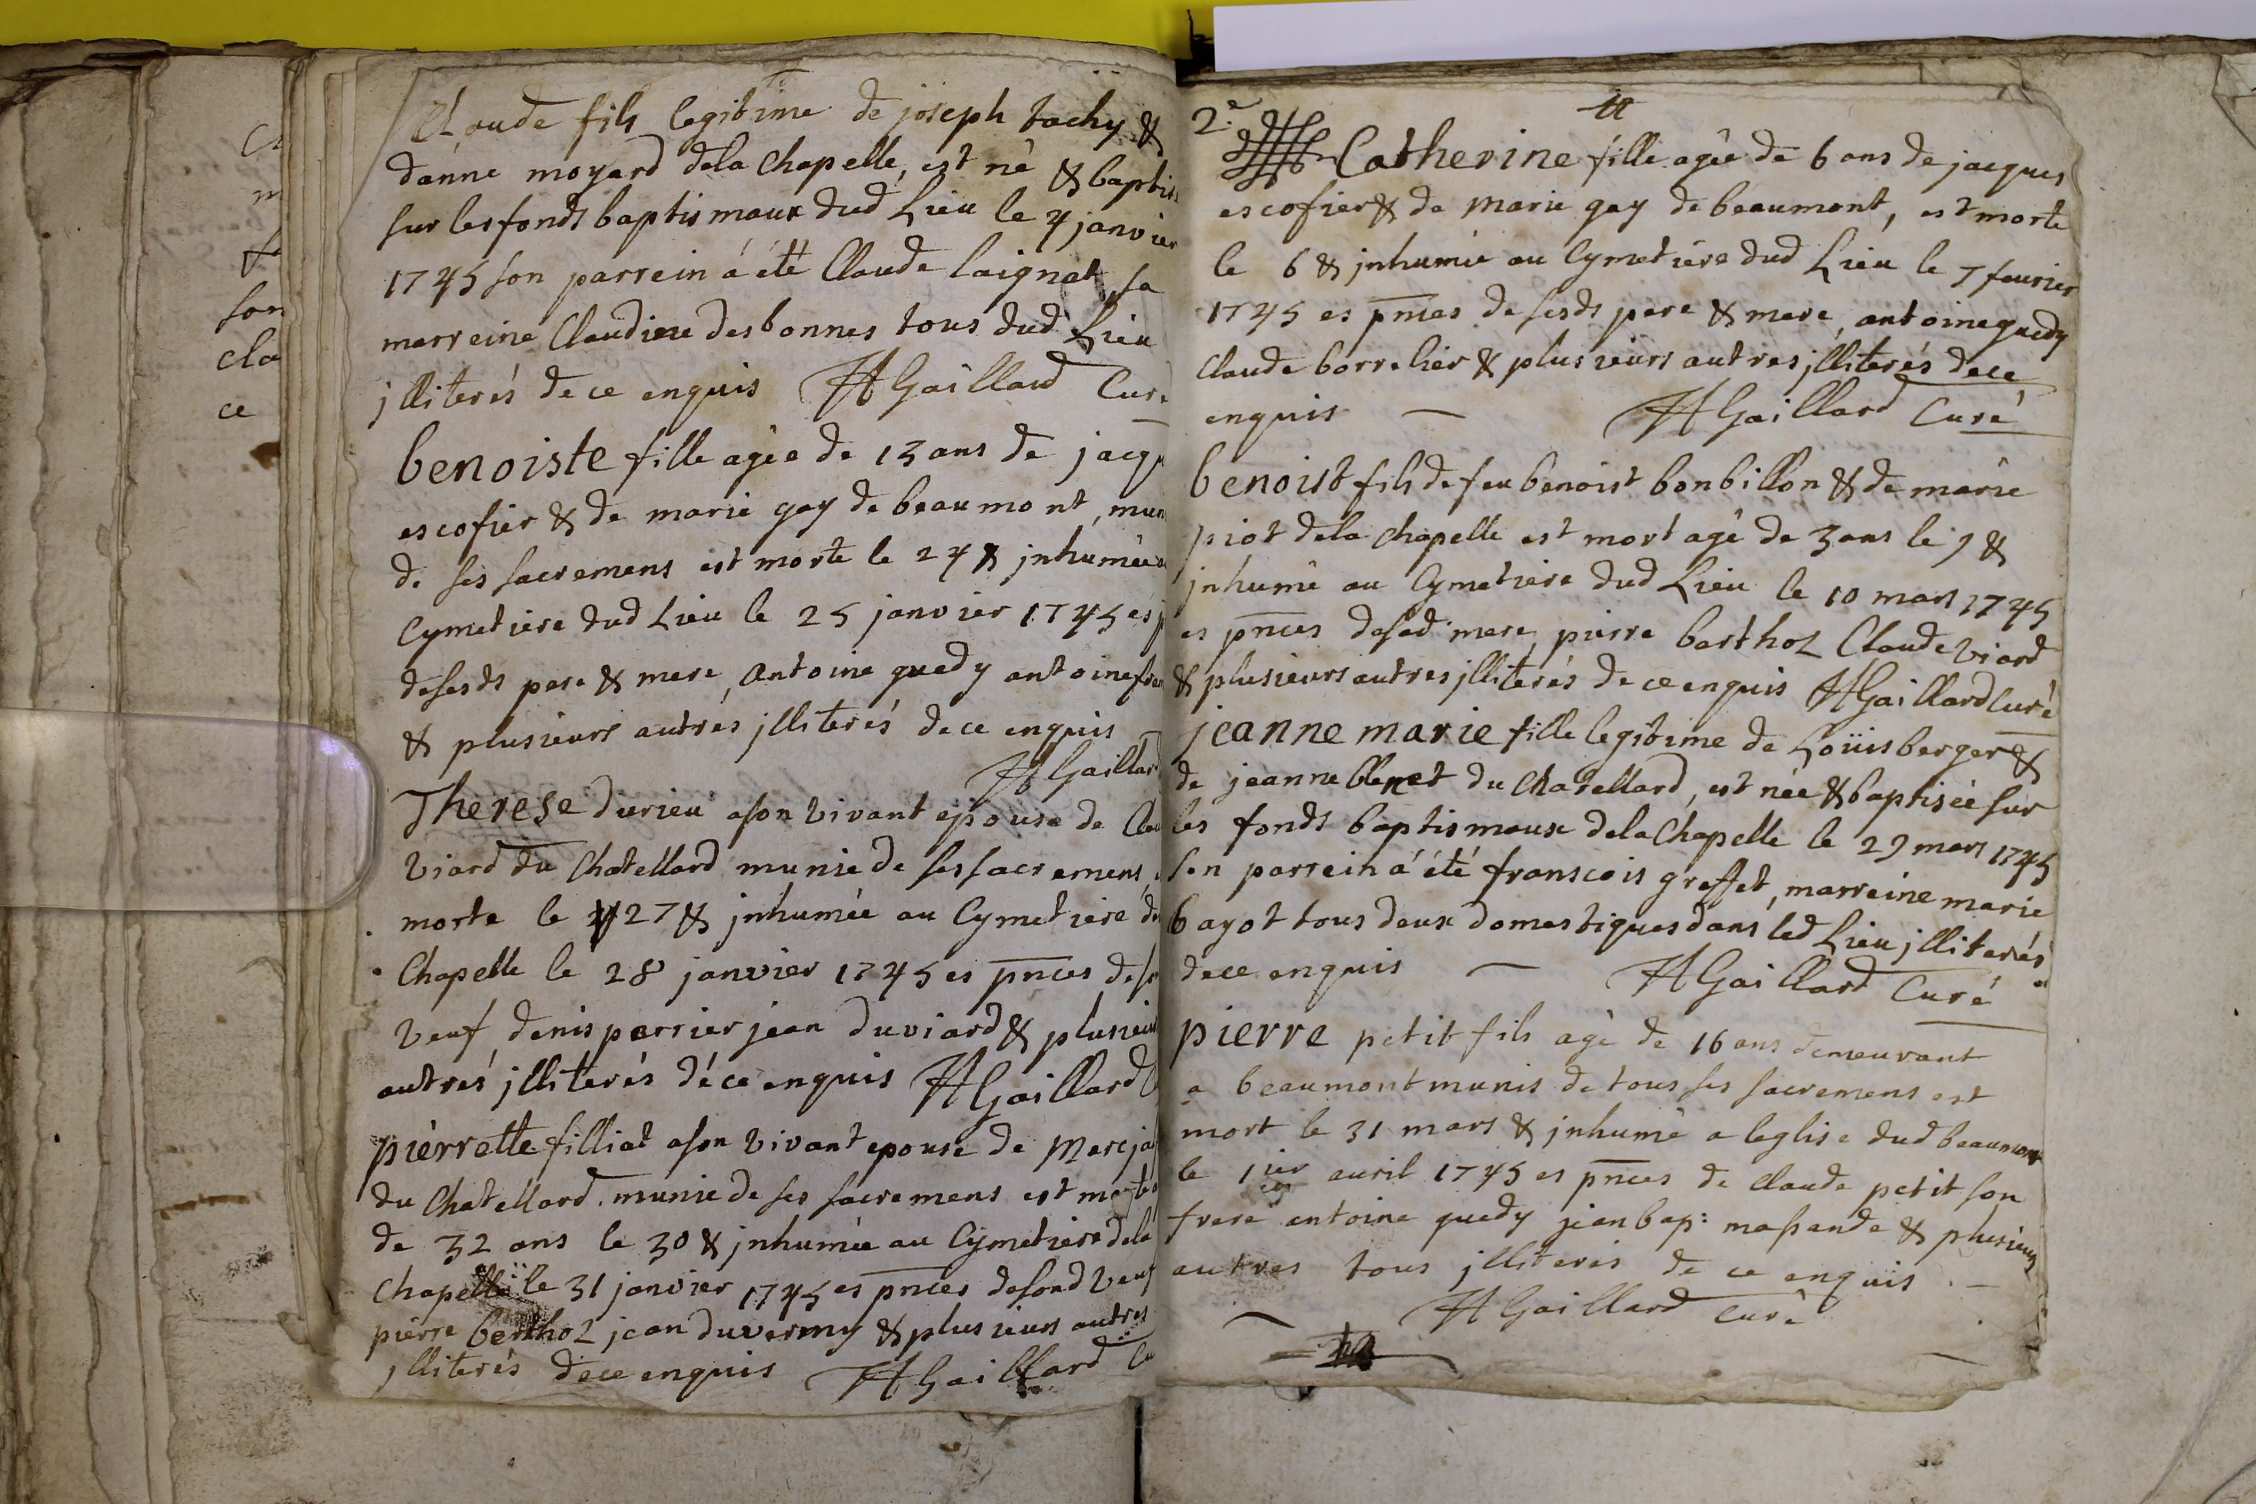 Claude fils legitime de joseph tachy &
danne moyard dela Chapelle, est né & baptis
sur les fonds baptismaux dud Lieu le 4 janvier
1745 son parrein á été Claude laignat sa
marreine Claudine desbonnes tous dud Lieu
jlliterés de ce enquis Gaillard Cur
benoiste fille agée de 13 ans de jacq
escofier & de marie gay de beaumont, mun
de ses sacremens est morte le 24 & jnhumée
Cymetiere dud Lieu le 25 janvier 1745 es p
desesds pere & mere, Antoine guedy antoine
& plusieurs autres jlliterés de ce enquis
Gaillard
Therese durieu ason vivant epouse de Clau
viard du Chatellard munie de ses sacremens
morte le 27 & jnhumée au Cymetiere de
Chapelle le 28 janvier 1745 es pnces de so
veuf denis perrier jean duviard & plusieur
autres jlliterés de ce enquis Gaillard
pierrette filliat ason vivant epouse de Marc ja
du Chatellard munie de ses sacremens est morte
de 32 ans le 30 & jnhumée au Cymetiere dela
Chapelle le 31 janvier 1745 es pnces desond veuf
pierre berthol jean duverny & plusieurs autres
jlliterés de ce enquis Gaillard Cu
Cl
m
son
cla
ce
2.e
Catherine fille agée de 6 ans de jacques
escofier & de Marie gay de beaumont, est morte
le 6 & jnhumée au Cymetiere dud Lieu le 7 feurier
1745 es pnces de sesds pere & mere, antoine guedy
Claude borrelier & plusieurs autres jlliterés de ce
enquis Gaillard Curé
benoist fils de feu benoist bonbillon & de marie
piot dela Chapelle est mort agé de 3 ans le 9 &
jnhumé au Cymetiere dud Lieu le 10 mars 1745
es pnces desad mere, pierre berthol Claude viard
& plusieurs autres jlliterés de ce enquis Gaillard Curé
jeanne marie fille legitime de Loüis berger &
de jeanne blenet du Chatellard, est née & baptisée sur
les fonds baptismaux dela Chapelle le 29 mars 1745
son parrein á été franscois greffet, marreine marie
bayot tous deux domestiques dans led Lieu jlliterés
de ce enquis Gaillard Curé
pierre petit fils agé de 16 ans demeurant
a beaumont munis de tous ses sacremens est
mort le 31 mars & jnhumé a leglise dud beaumont
le 1ier auril 1745 es pnces de Claude petit son
frere antoine guedy jean bap: massande & plusieurs
autres tous jlliterés de ce enquis
Gaillard Curé